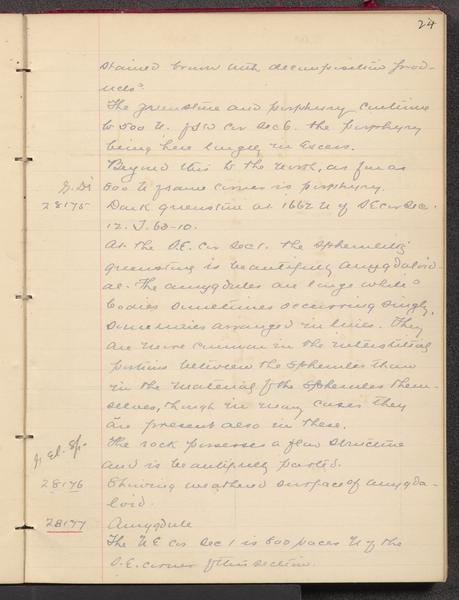 24
stained brown with decomposition prod-
ucts.
The greenstone and porphyry continue
to 500 N. of SW cor Sec 6. the porphyry
being here largely in excess.
Beyond this to the north, as far as
800 N of same corner is porphyry.
28175 Dark greenstone at 1662 N of SE cor Sec.
12. T. 63-10.
At the S.E. cor Sec 1. the spherulitic
greenstone is beautifully amygdaloid-
al. The amygdules are large white
bodies sometimes occurring singly,
sometimes arranged in lines. They
are more common in the interstitial
portions between the spherules than
in the material of the spherules them-
selves, though in many cases they
are present also in these.
The rock possesses a flow structure
and is beautifully parted.
28176 Showing weathered surface of amygda-
loid.
28177 Amygdule
The N E cor Sec 1 is 800 paces N of the
S.E. corner of this section.